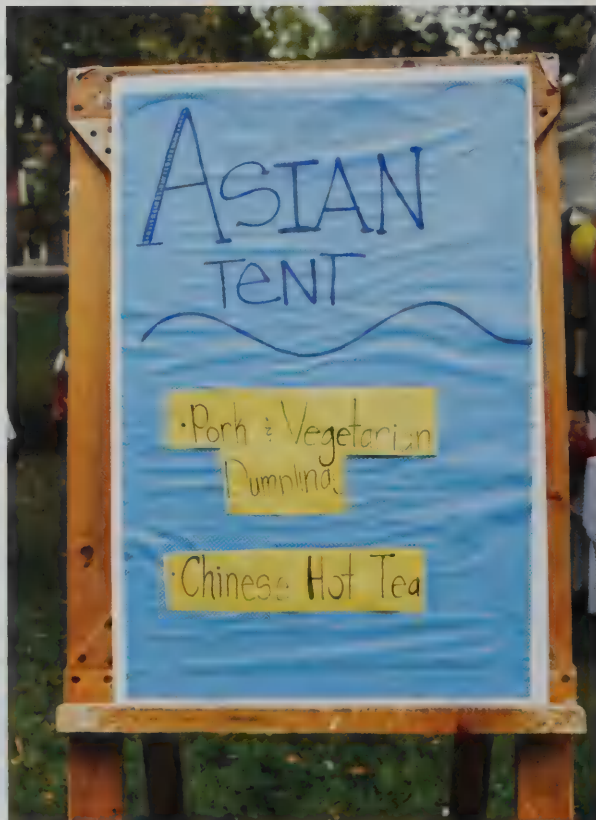 ASIAN
TENT
·Pork & Vegetarian
Dumplings
·Chinese Hot Tea